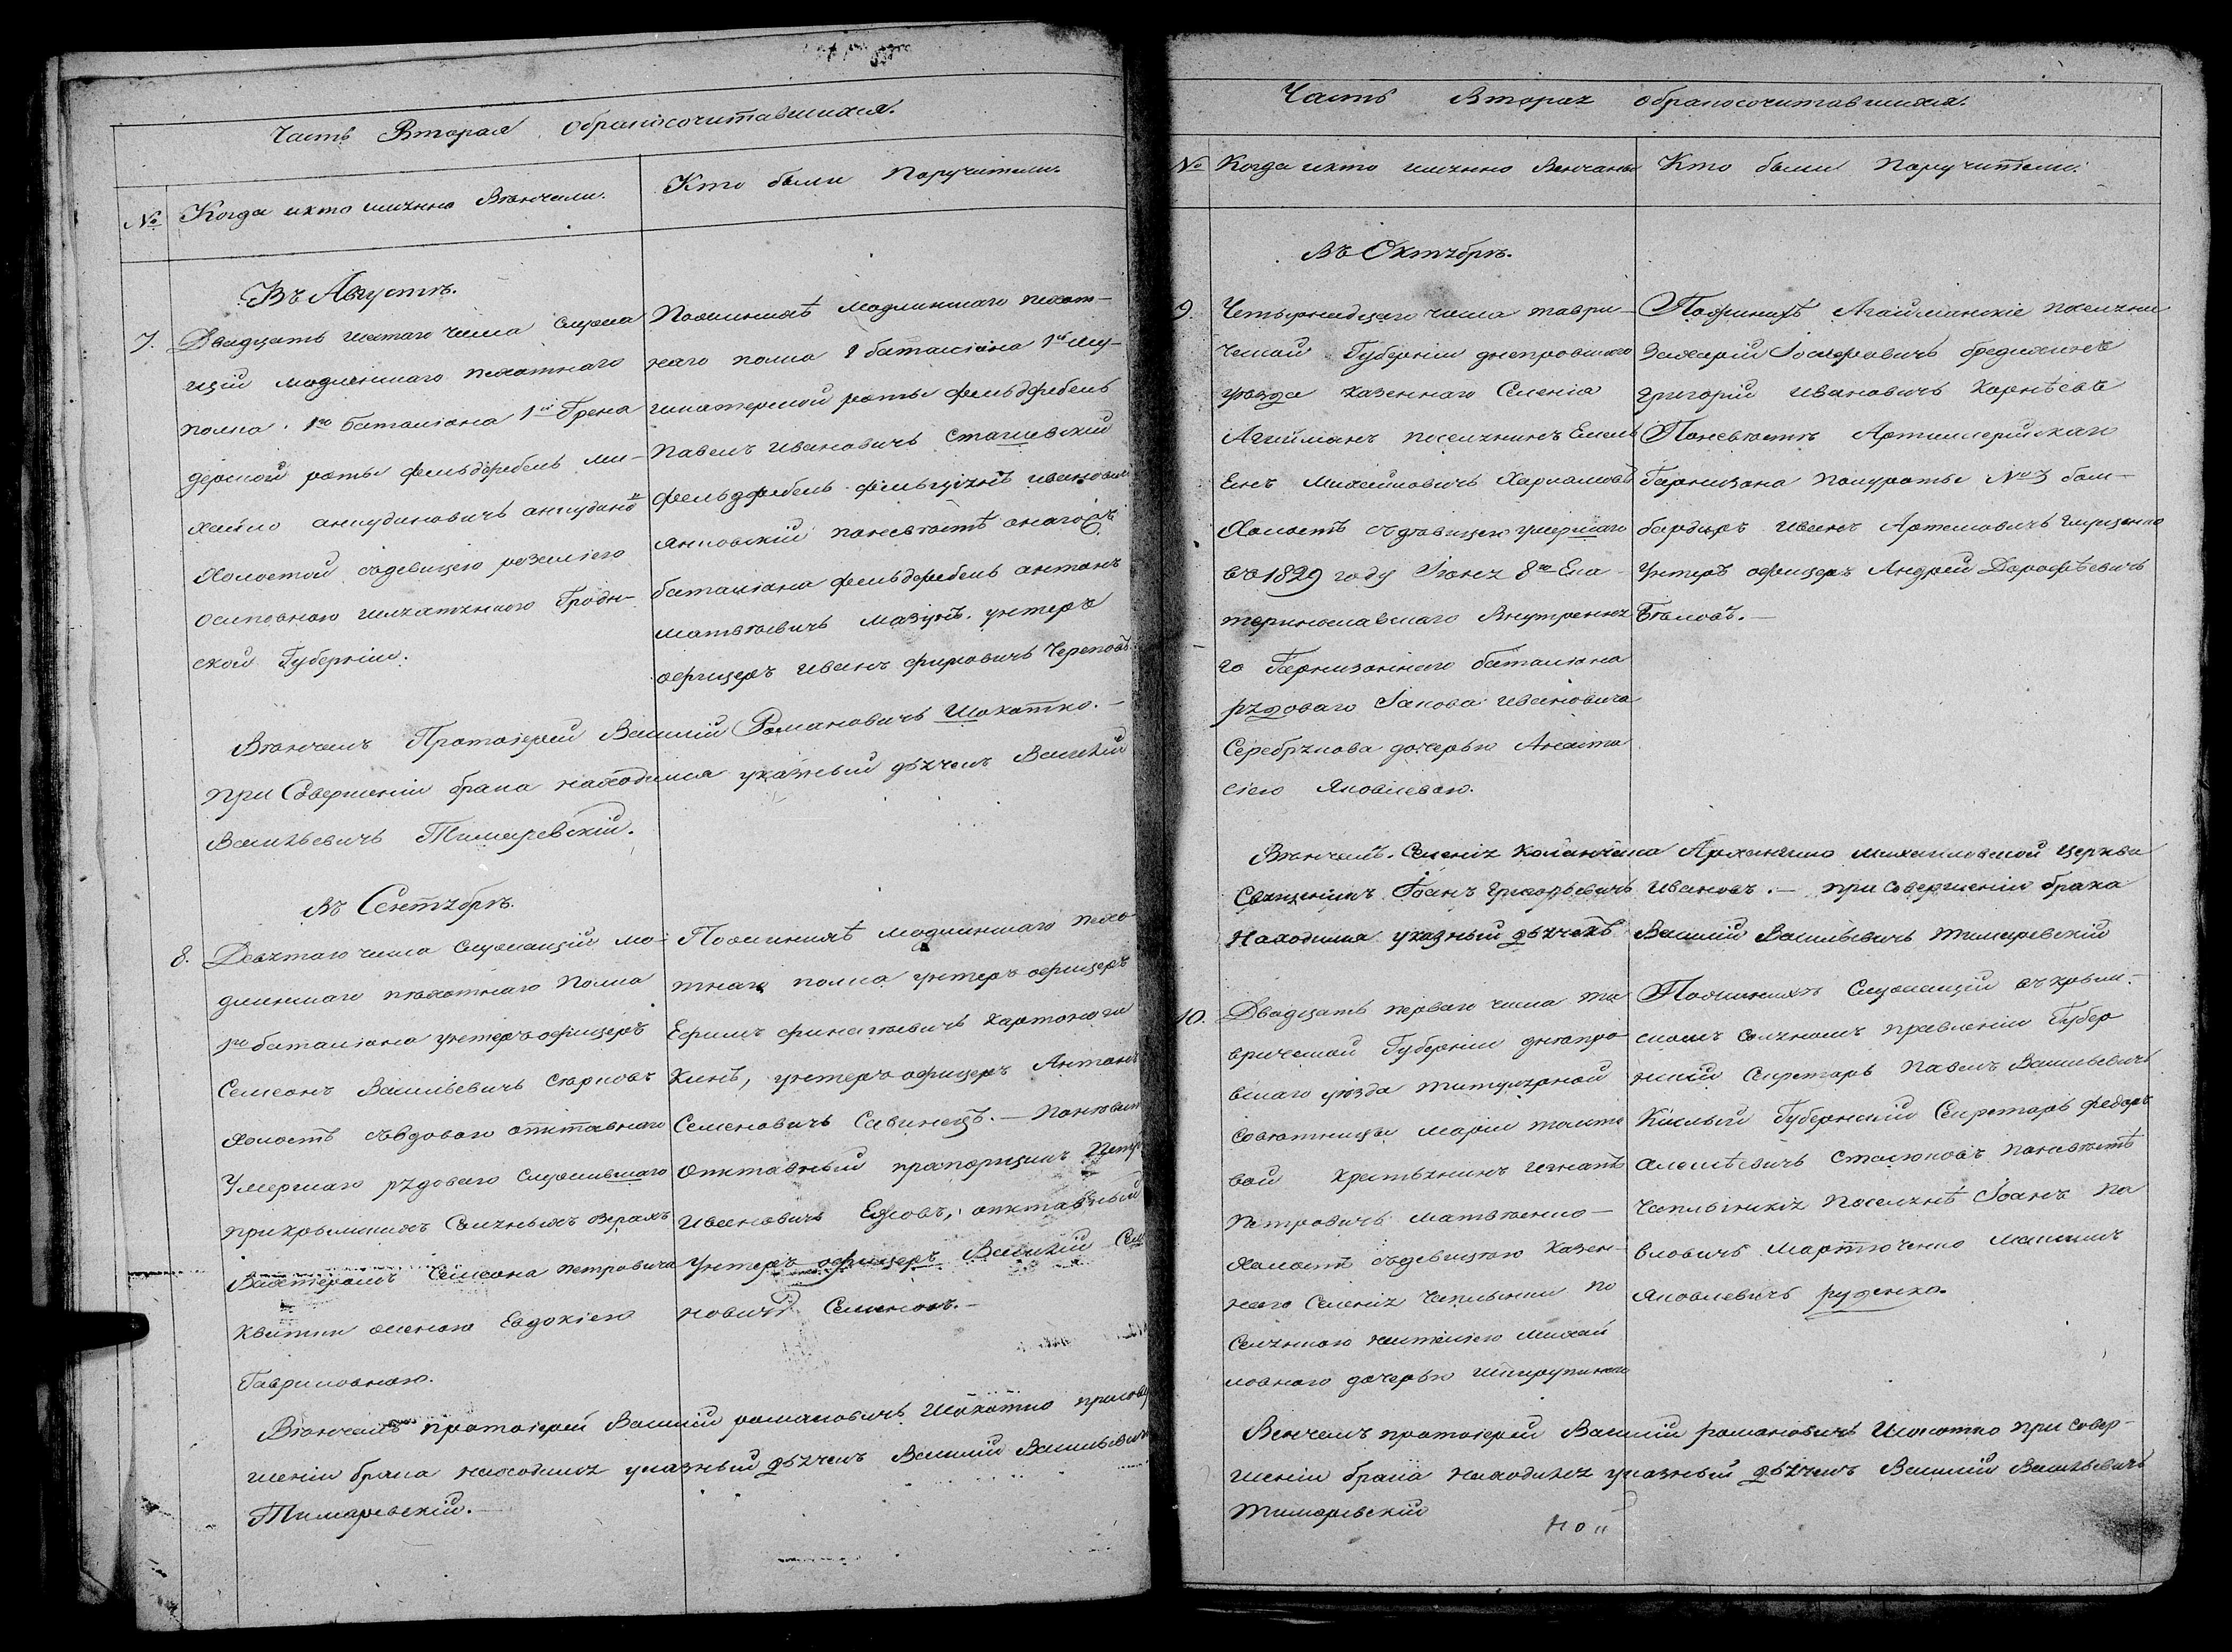 Часть Вторая о бракосочитавшихся.
№ Когда и кто именно Вѣнчали. Кто были Поручители.
Въ Августѣ.
7. Двадцать шестаго числа служа
щій модлинскаго пехотнаго
полка 1го баталіона 1й Грена
дерской роты фельдфебель ми-
хайло
холостой съ девицею розаліею
осиповною Гродн-
ской Губерніи.
По женихѣ модлинскаго пехот-
наго полка 2 баталіона 1й му-
шкатерской роты фельдфебель
Павелъ Ивановичъ Сташевскій
фельдфебель ивановичъ
Янковскій по невѣстѣ онагожъ
баталіона фельдфебель антонъ
матвѣевичъ мазунъ. унтеръ
офицеръ Иванъ Черповъ
Вѣнчалъ Протоіерей Василій Романовичъ Шохотко.
при Совершеніи брака находился указный дьячекъ Василій
Васильевичъ Тимаревскій.
Въ Сентябрѣ.
8. Девятаго числа служащій мо-
длинскаго пѣхотнаго Полка
1го баталіона унтеръ-офицеръ
Семеонъ Васильевичъ Старковъ
холостъ съ вдовою отставнаго
Умершаго рядоваго Служившаго
при крымскихъ Соляныхъ озерахъ
Вахтеромъ Семеона петровича
Квитки женою Евдокіею
Гавриловною.
По женихѣ модлинскаго пехо-
тнаго полка унтеръ-офицеръ
Ефимъ Картоножа
Кинъ, унтеръ-офицеръ Антонъ
Семеновичъ Савинецъ. — По невѣст
отставный прапорщикъ Петръ
Ивановичъ Ежовъ, отставный
Унтеръ-офицеръ Василій Сем
новичъ Семеновъ.—
Вѣнчалъ протоіерей Василій романовичъ Шохотко при сове
шеніи брака находился указный дьячекъ Василій Васильевичъ
Тимаревскій.—
Часть Вторая о бракосочитавшихся.
№ Когда и кто именно Венчаны Кто были Поручители.
Въ Октябрѣ.
9. Четырнадцаго числа таври-
ческой Губерніи днепровскаго
уѣзда казеннаго Селенія
Агайманъ поселянинъ Емель
Енъ Михайловичъ Харламовъ
Холостъ съ дѣвицею умершаго
въ 1829 году Іюня 8го Ека-
теринославскаго Внутрення
го Гарнизоннаго баталіона
рядоваго Іакова Ивановича
Серебрякова дочерью Анаста
сіею Яковлевою.
По женихѣ Агайманскіе поселяни
Захарій Іосифовичъ бредихинъ
Григорій Ивановичъ Карнѣевъ
По невѣстѣ Артиллерійскаго
Гарнизона полуроты № 3 бом-
бардиръ Иванъ Артемовичъ Гирденко
Унтеръ офицеръ Андрей Дорофѣевичъ
Бѣловъ.—
Вѣнчалъ. Селенія Каланчака Архангело михайловской церкви
Священникъ Іоанъ Григорьевичъ Ивановъ.— при совершеніи брака
Находился указный дьячекъ Василій Васильевичъ Тимаревскій
10. Двадцать перваго числа та
врической Губерніи днѣпро-
вскаго уѣзда титулярной
Совѣтницы маріи толсто
вой крестьянинъ Игнатъ
Петровичъ матвѣенко-
холостъ съ девицею Казен-
наго Селенія Чаплынки по
Селянскою жителькою михай
ловною дочерью
По женихѣ Служащій въ крым-
скомъ Соляномъ правленіи Губер
нскій Секретарь Павелъ Васильевичъ
Кислый Губернскій Секретарь Федоръ
Алексѣевичъ Стасюковъ по невѣстѣ
Чаплынскія поселянѣ Іоанъ Па
вловичъ Мартюченко Максимъ
Яковлевичъ руденко.
Венчалъ протоіерей Василій романовичъ Шохотко при совер-
шеніи брака находился указный дьячекъ Василій Васильевичъ
Тимаревскій